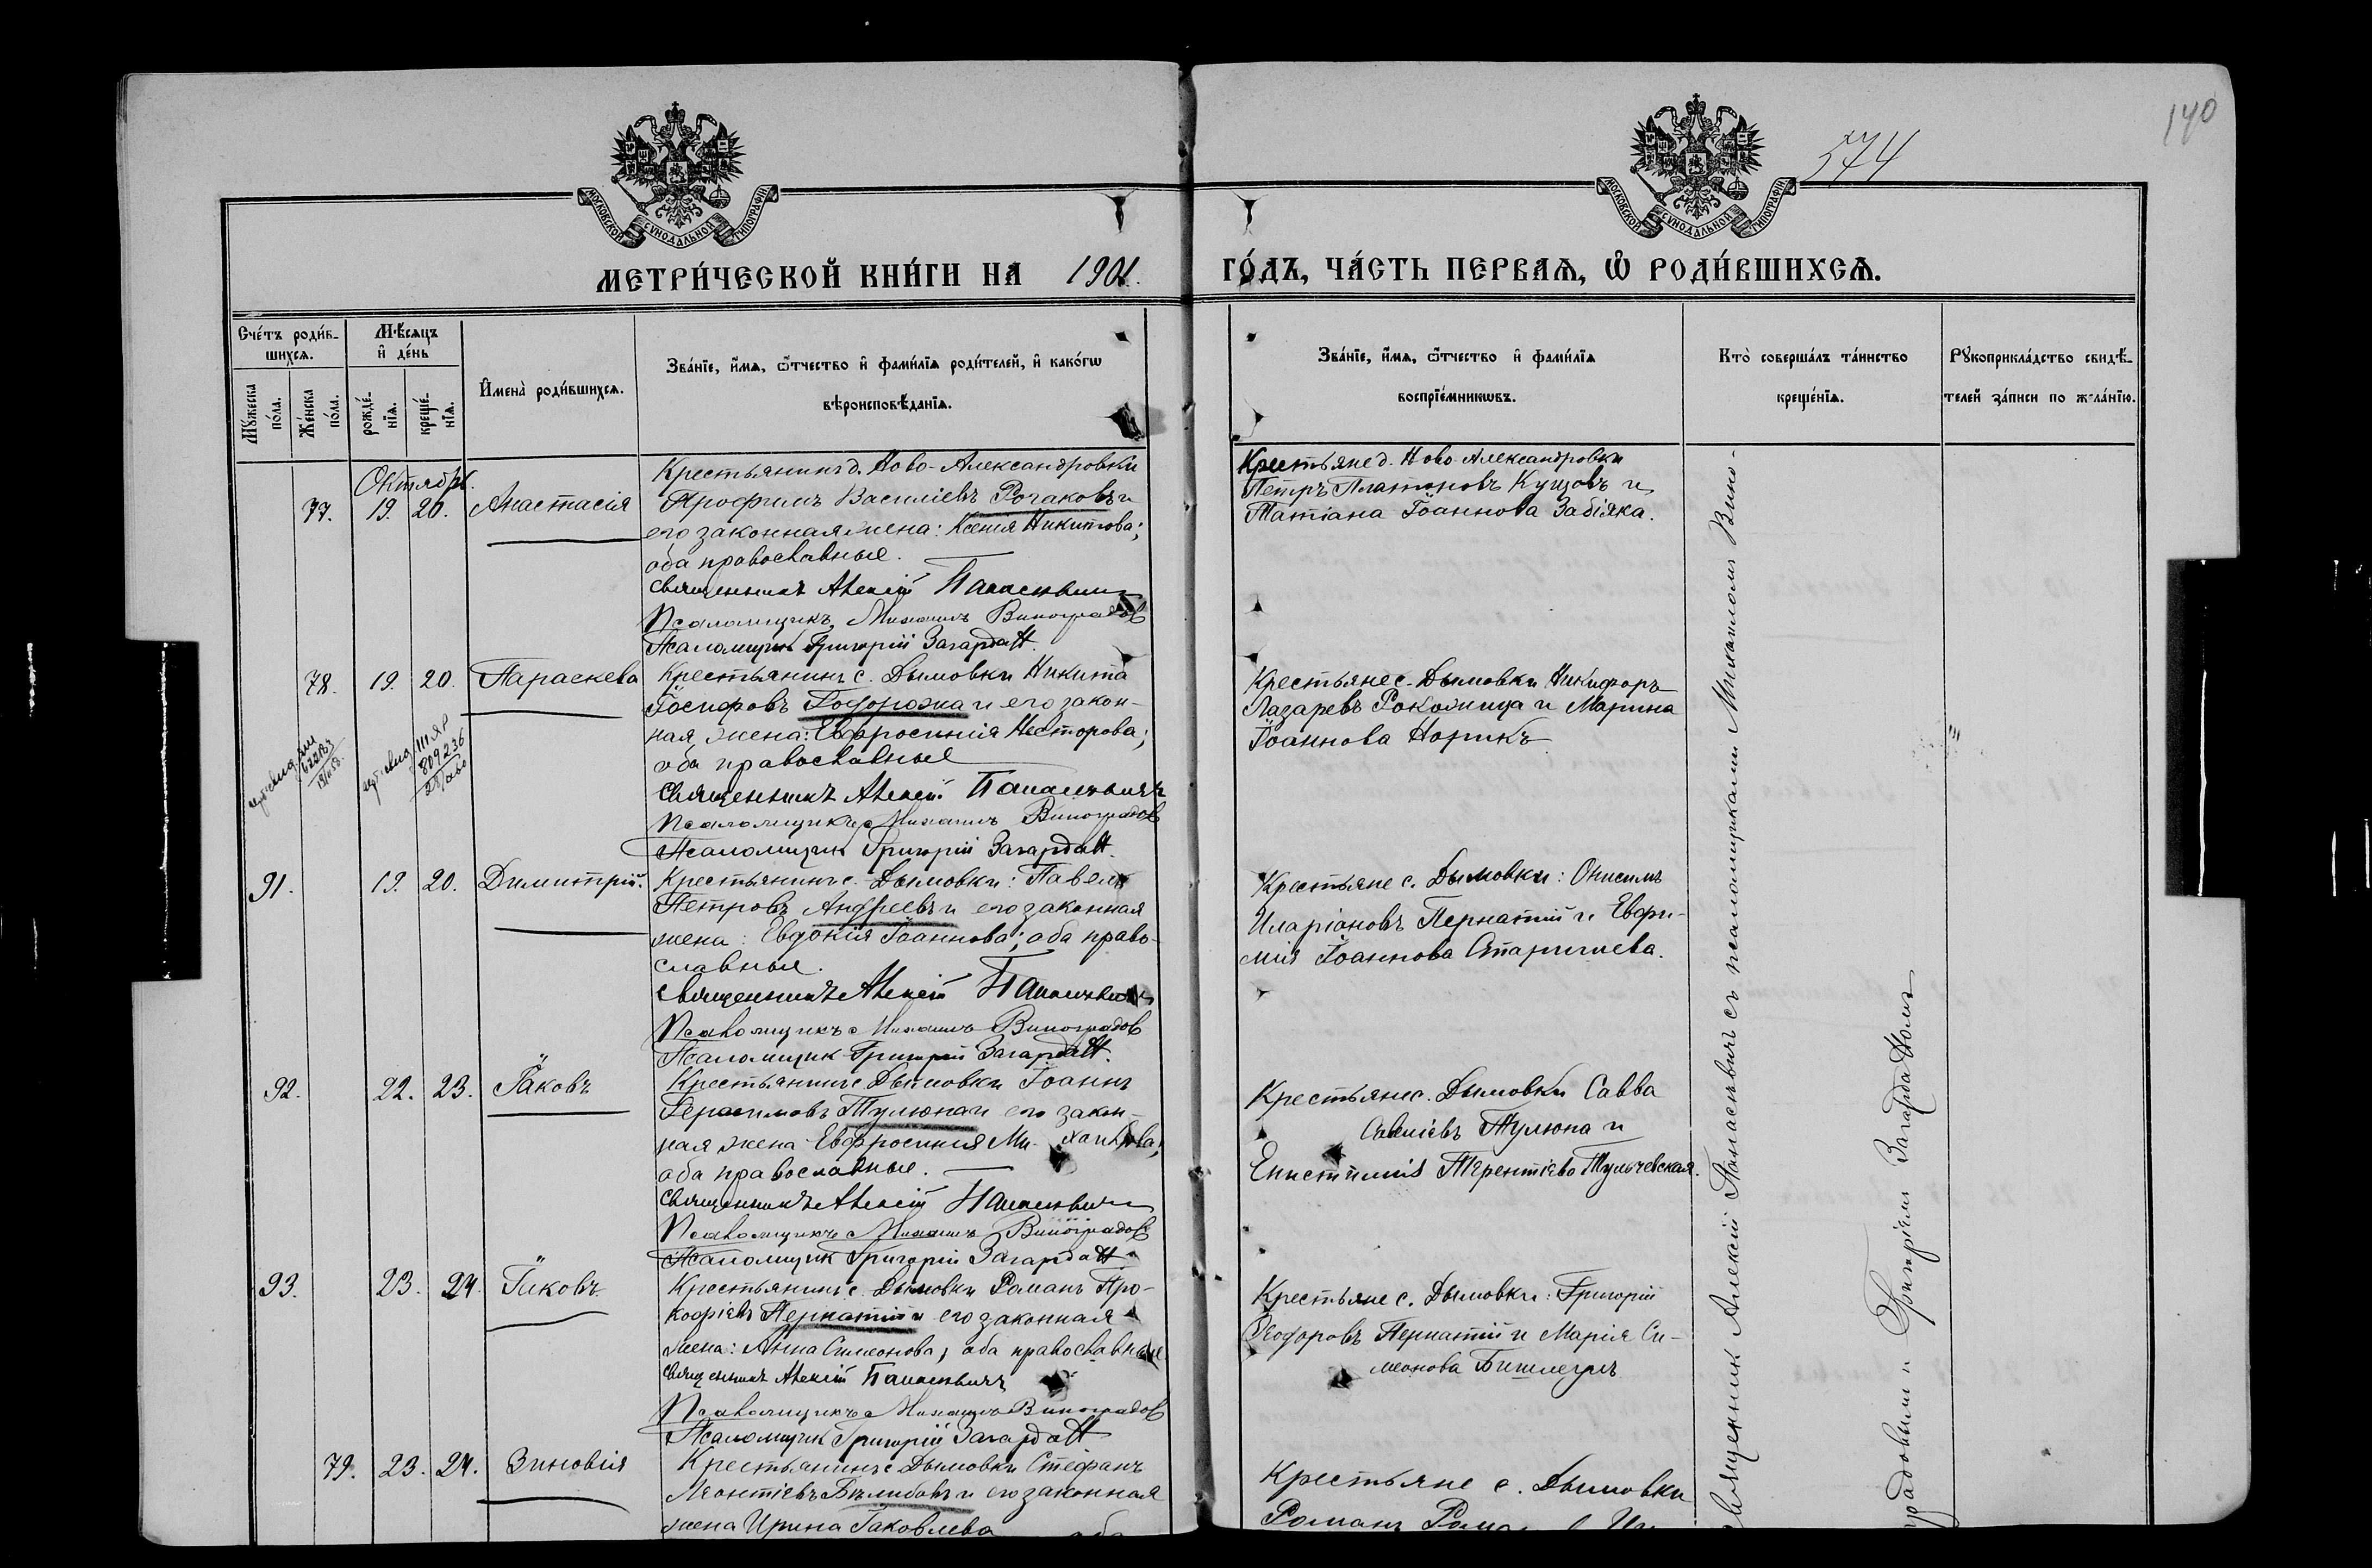 140
574
МОСКОВСКОЙ СѴНОДАЛЬНОЙ ТИПОГРАФІИ
МОСКОВСКОЙ СѴНОДАЛЬНОЙ ТИПОГРАФІИ
МЕТРИ́ЧЕСКОЙ КНИ́ГИ НА 1901.
ГО́ДЪ, ЧА́СТЬ ПЕРВАѦ, Ѽ РОДИ́ВШИХСѦ.
Сче́тъ роди́в-
шихсѧ.
Мꙋ́жеска
по́ла.
Же́нска
по́ла.
Мѣ́сяцъ
и҆ де́нь
рожде́-
нїѧ.
креще́-
нїѧ.
И҆мена̀ роди́вшихсѧ.
Зва́нїе, и҆́мѧ, ѻ҆́тчество и҆ фами́лїѧ роди́телей, и҆ како́гѡ
вѣроисповѣ́данїѧ.
Зва́нїе, и҆́мѧ, ѻ҆́тчество и҆ фами́лїѧ
воспрїе́мникѡвъ.
Кто̀ соверша́лъ та́инство
креще́нїѧ.
Рꙋкоприкла́дство свидѣ́-
телей за́писи по жела́нїю.
Октябрь.
77. 19. 20. Анастасія
Крестьянинъ д. Ново-Александровки
Трофимъ Василіевъ Рогаковъ и
его законная жена: Ксенія Никитова;
оба православные.
Священникъ Алексій Панасевичъ
Псаломщикъ Михаилъ Виноградов
Псаломщик Григорій Загарда
Крестьяне д. Ново-Александровки
Петръ Платоновъ Куцовъ и
Татіана Іоаннова Забіяка.
78. 19. 20. Параскева
Крестьянинъ с. Дымовки Никита
Іосифовъ и его закон-
ная жена: Евфросинія Несторова;
оба православные
Священникъ Алексій Панасевичъ
Псаломщикъ Михаилъ Виноградов
Псаломщик Григорій Загарда
Крестьяне с. Дымовки Никифоръ
Лазаревъ и Марина
Іоаннова Норикъ
809236
91. 19. 20. Димитрій.
Крестьянинъ с. Дымовки: Павелъ
Петровъ Андреевъ и его законная
жена: Евдокія Іоаннова; оба право-
славные.
Священникъ Алексій Панасевичъ
Псаломщикъ Михаилъ Виноградов
Псаломщик Григорій Загарда
Крестьяне с. Дымовки: Онисимъ
Иларіоновъ Пернатій и Евфи-
мія Іоаннова Старичнева.
92. 22. 23. Іаковъ
Крестьянинъ с. Дымовки Іоаннъ
Герасимовъ Тулюпа и его закон-
ная жена Евфросинія Ми- хаилова;
оба православные.
Священникъ Алексій Панасевичъ
Псаломщикъ Михаилъ Виноградов
Псаломщик Григорій Загарда
Крестьяне с. Дымовки Савва
Савеліевъ Тулюпа и
Епистимія Терентіева Тульчевская.
93. 23. 24. Іаковъ
Крестьянинъ с. Дымовки Романъ Про-
кофіевъ Пернатій и его законная
жена: Анна Симеонова, оба православные
Священникъ Алексій Панасевичъ
Псаломщикъ Михаилъ Виноградов
Псаломщик Григорій Загарда
Крестьяне с. Дымовки: Григорій
Ѳеодоровъ Пернатій и Марія Си-
меонова
79. 23. 24. Зиновія
Крестьянинъ с. Дымовки Стефанъ
Леонтіевъ и его законная
жена Ирина Іаковлева оба
Крестьяне с. Дымовки
Романъ
Священник Алексій Панасевичъ съ псаломщиками Михаиломъ Вино-
градовымъ и Григоріемъ Загарда